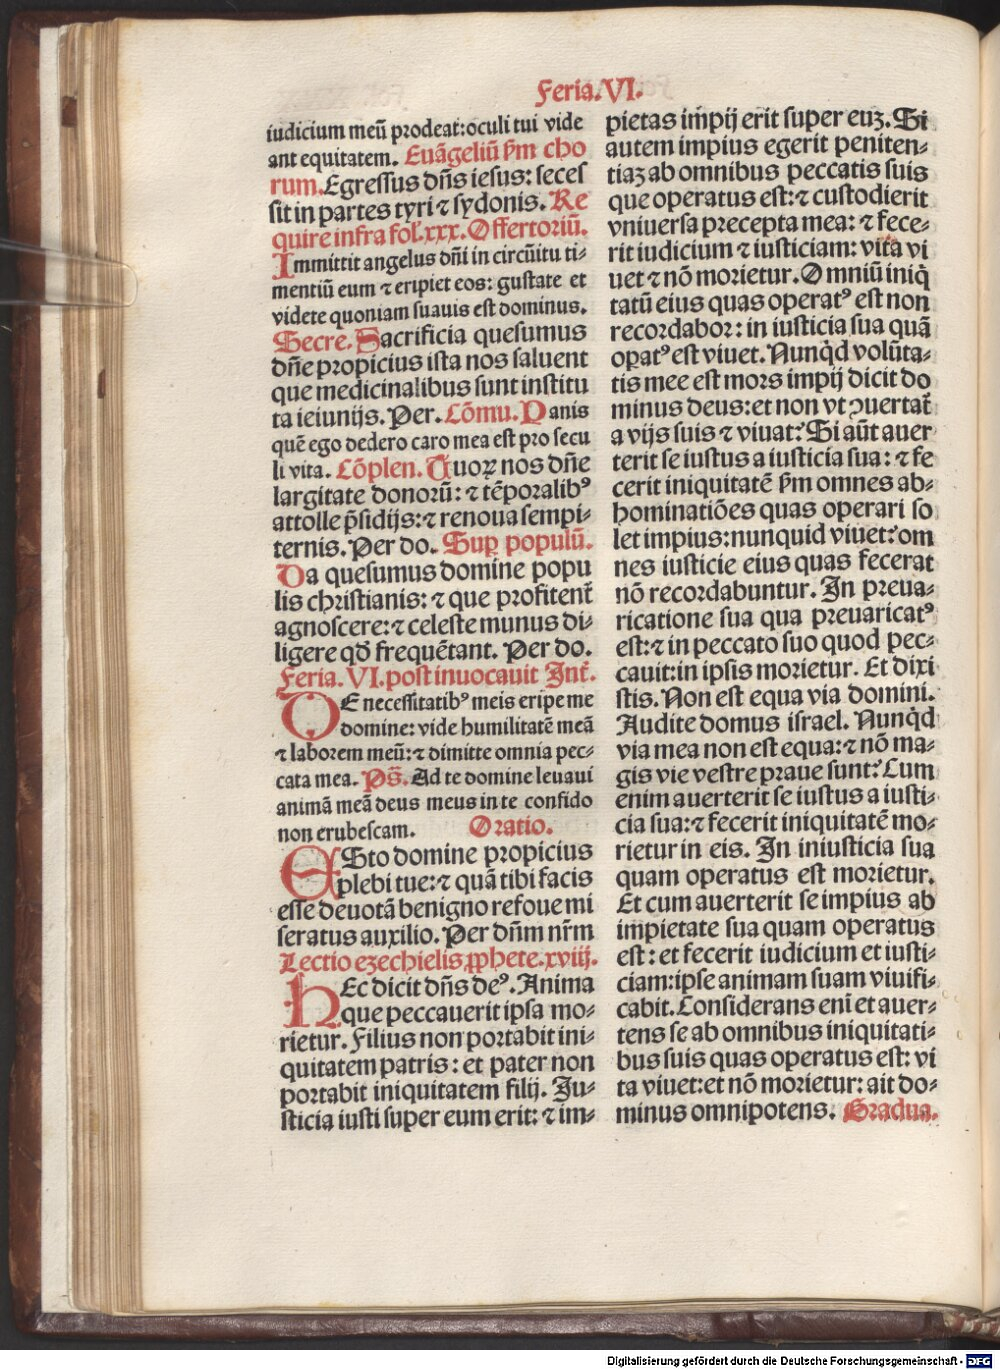 Feria.VI.
iudicium meū prodeat:oculi tui vide
ant equitatem. Euāgeliū p̄m cho
rum.Egressus dn̄s iesus: seces
sit in partes tyri ⁊ sydonis. Re
quire infra fol.xxx. Offertoriū.
Immittit angelus dn̄i in circūitu ti⸗
mentiū eum ⁊ eripiet eos: gustate et
videte quoniam suauis est dominus.
Secre. Sacrificia quesumus
dn̄e propicius ista nos saluent
que medicinalibus sunt institu
ta ieiunijs. Per. Cōmu. Panis
quē ego dedero caro mea est pro secu
li vita. Cōplen. Tuoꝝ nos dn̄e
largitate donorū: ⁊ tēporalibꝰ
attolle p̄sidijs:⁊ renoua sempi⸗
ternis. Per do. Suꝑ populū.
Da quesumus domine popu
lis christianis: ⁊ que profitent̄
agnoscere:⁊ celeste munus di⸗
ligere qđ frequētant. Per do.
Feria. VI. post inuocauit Int̄.
DE necessitatibꝰ meis eripe me
domine: vide humilitatē meā
⁊ laborem meū:⁊ dimitte omnia pec⸗
cata mea. Ps̄. Ad te domine leuaui
animā meā deus meus in te confido
non erubescam. Oratio.
ESto domine propicius
plebi tue:⁊ quā tibi facis
esse deuotā benigno refoue mi
seratus auxilio. Per dn̄m nr̄m
Lectio ezechielis ꝓphete.xviij.
HEc dicit dn̄s deꝰ. Anima
que peccauerit ipsa mo⸗
rietur. Filius non portabit ini⸗
quitatem patris: et pater non
portabit iniquitatem filij. Ju⸗
sticia iusti super eum erit: ⁊ im⸗
pietas im̄pij erit super euꝫ. Si
autem impius egerit peniten⸗
tiaꝫ ab omnibus peccatis suis
que operatus est:⁊ custodierit
vniuersa precepta mea: ⁊ fece⸗
rit iudicium ⁊ iusticiam: vita vi
uet ⁊ nō morietur. Omniū iniq̇
tatū eius quas operatꝰ est non
recordabor: in iusticia sua quā
oꝑatꝰ est viuet. Nunq̇d volūta⸗
tis mee est mors impij dicit do
minus deus:et non vt ꝯuertat̄
a vijs suis ⁊ viuat? Si aūt auer
terit se iustus a iusticia sua: ⁊ fe
cerit iniquitatē p̄m omnes ab⸗
hominatiōes quas operari so
let impius:nunquid viuet? om
nes iusticie eius quas fecerat
nō recordabuntur. In preua⸗
ricatione sua qua preuaricatꝰ
est:⁊ in peccato suo quod pec⸗
cauit:in ipsis morietur. Et dixi
stis. Non est equa via domini.
Audite domus israel. Nunq̇d
via mea non est equa:⁊ nō ma⸗
gis vie vestre praue sunt? Cum
enim auerterit se iustus a iusti⸗
cia sua:⁊ fecerit iniquitatē mo⸗
rietur in eis. In iniusticia sua
quam operatus est morietur.
Et cum auerterit se impius ab
impietate sua quam operatus
est: et fecerit iudicium et iusti⸗
ciam:ipse animam suam viuifi⸗
cabit. Considerans eni̅ et auer⸗
tens se ab omnibus iniquitati⸗
bus suis quas operatus est: vi
ta viuet:et nō morietur: ait do⸗
minus omnipotens. Gradua.
Digitalisierung gefördert durch die Deutsche Forschungsgemeinschaft - DFG